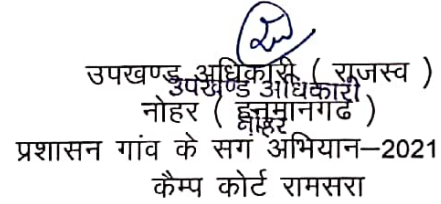 उपखण्ड अधिकारी ( राजस्व )
उपखण्ड अधिकारी
नोहर ( हनुमानगढ )
नोहर
प्रशासन गांव के सग अभियान–2021
कैम्प कोर्ट रामसरा